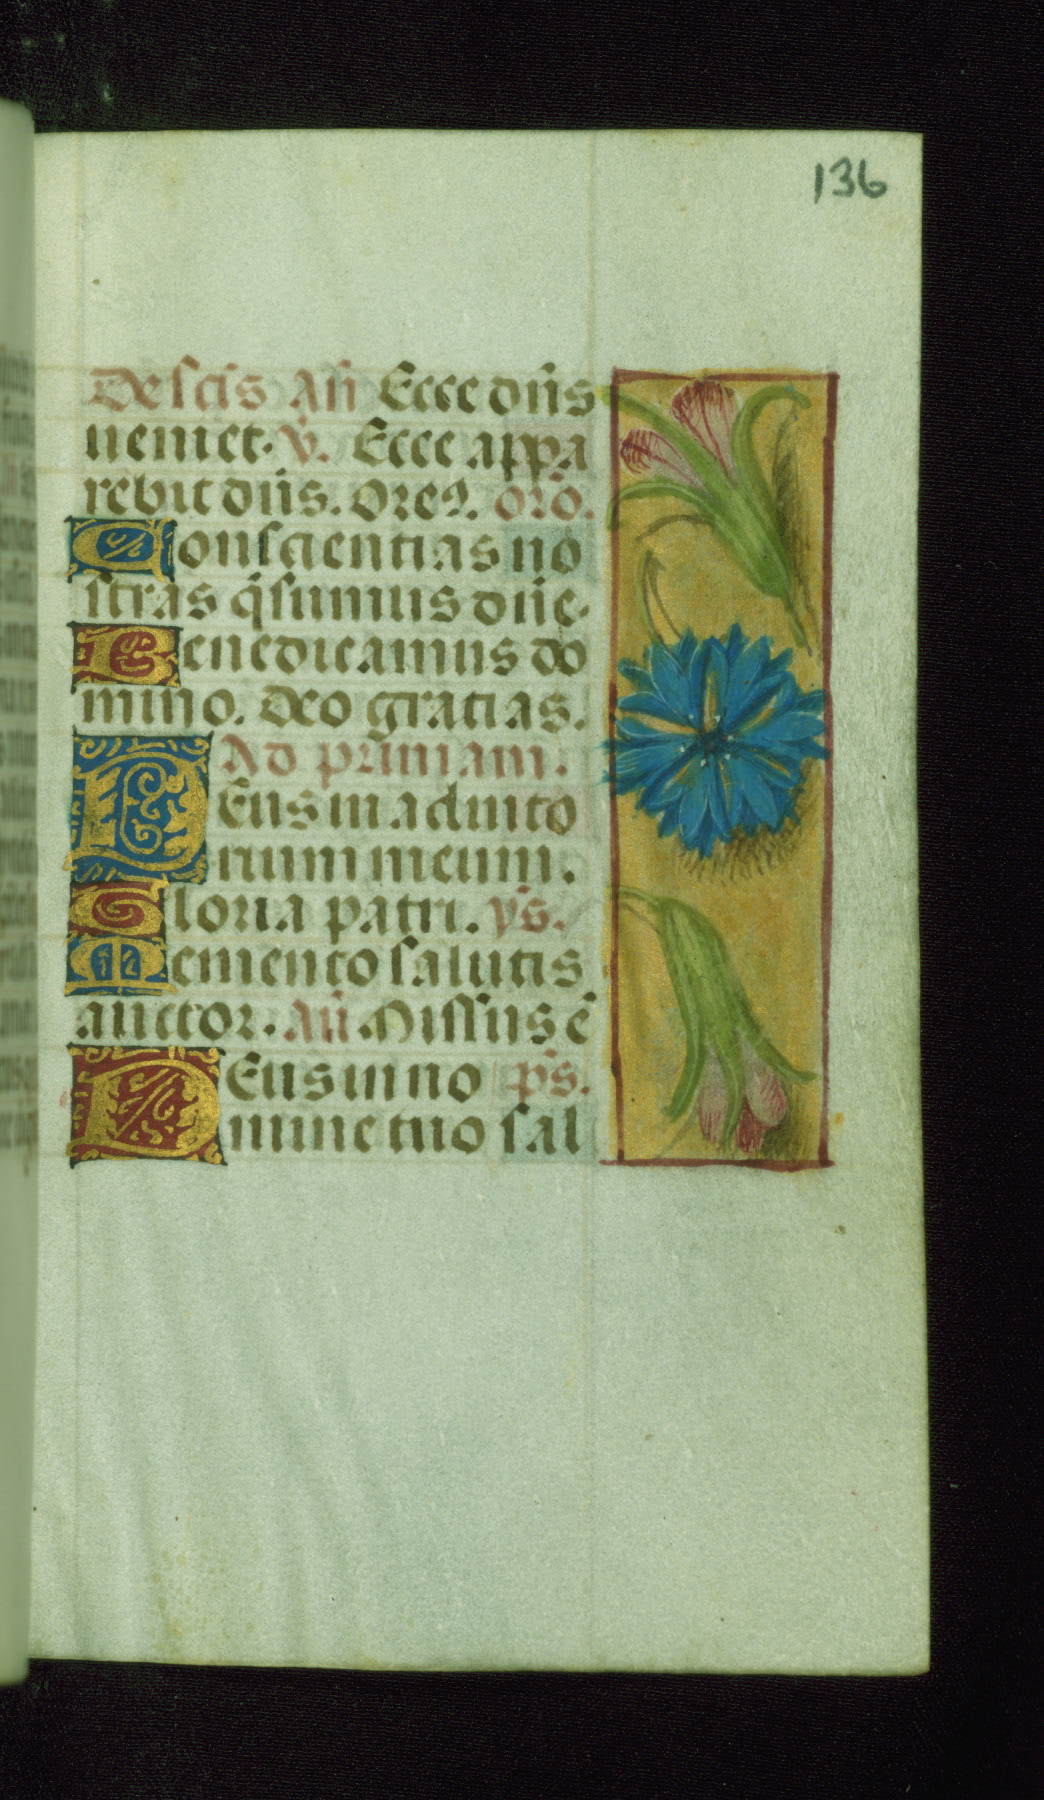 136
De scis añ Ecce dñs
ueniet. v̄. Ecce appa
rebit dñs. Oreꝰ. orõ.
Conscientias no
stras q̃sumus dñe.
Benedicamus do
mino. Deo gratias.
Ad primam.
Deus in adiuto
rium meum.
Gloria patri. ys̃.
Memento salutis
auctor. añ Missus ẽ
Deus in no ps̃.
mine tuo sal